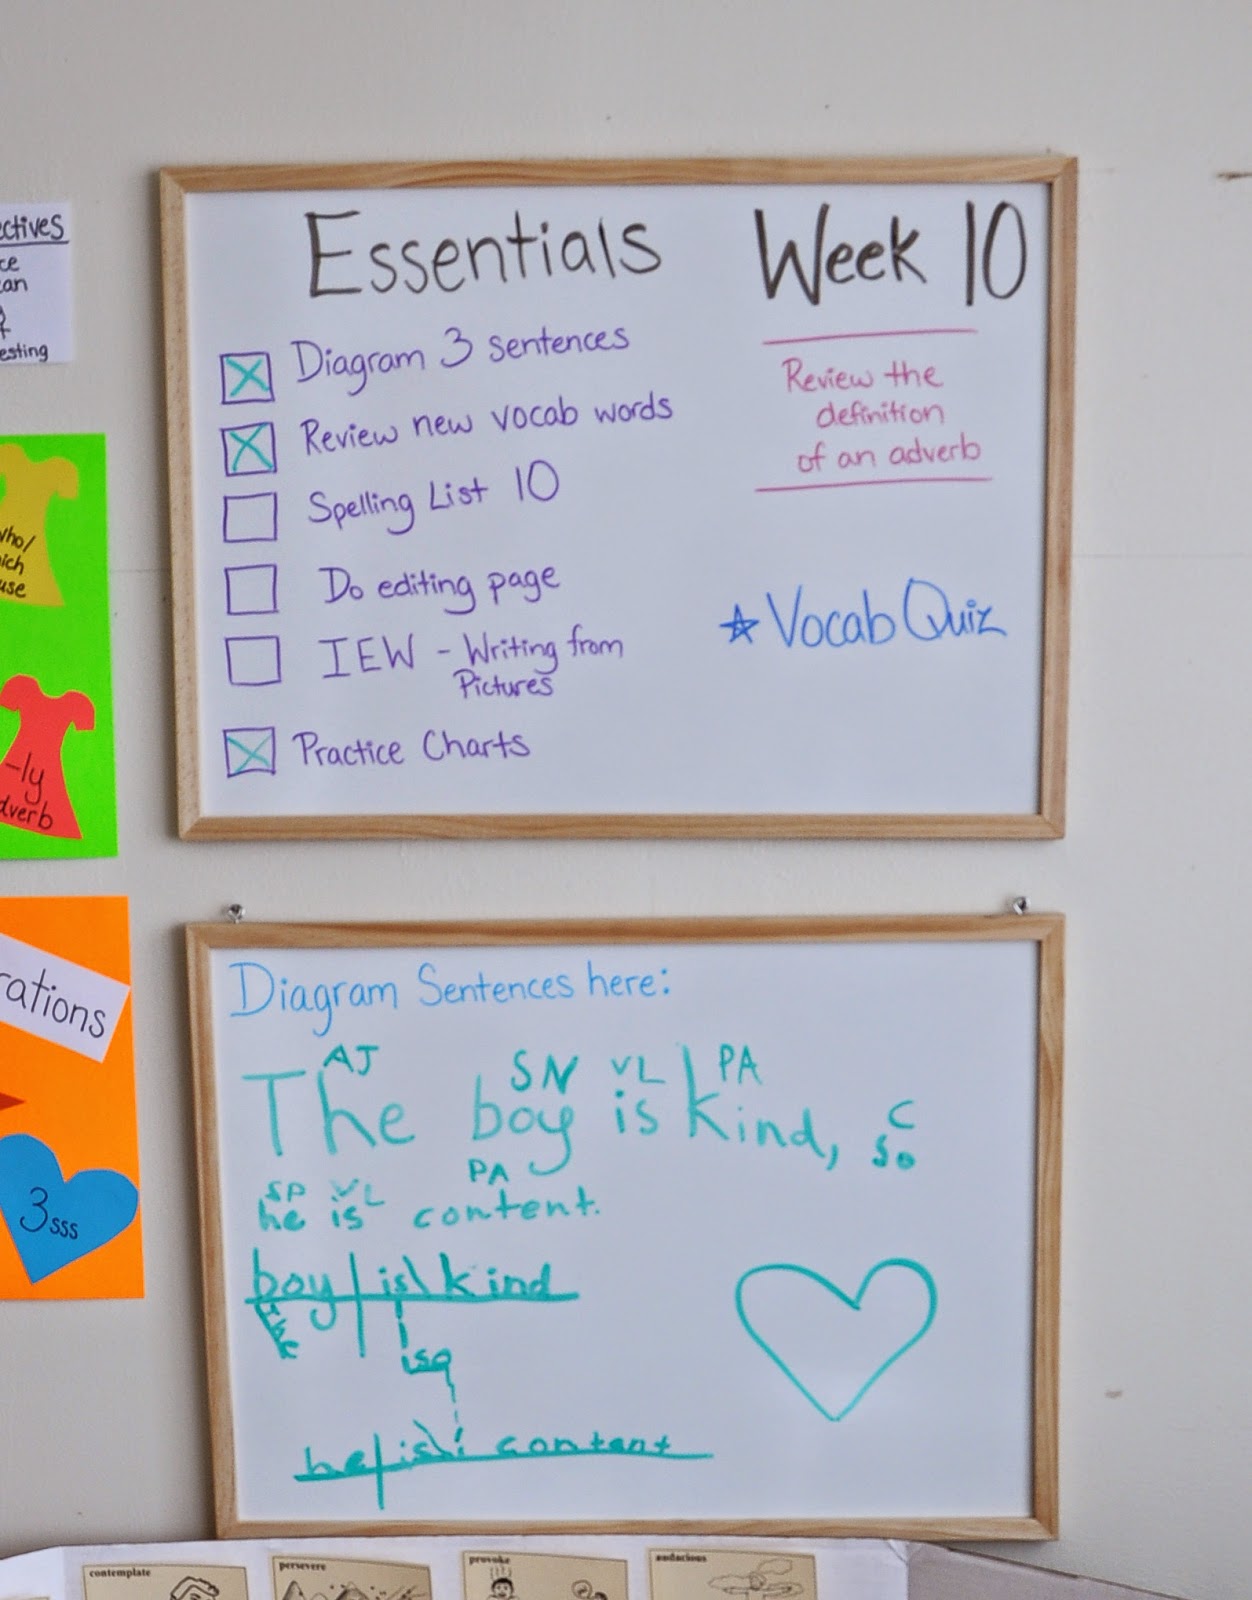 ectives
ce
ean
esting
who/
ich
use
-ly
dverb
rations
3sss
Essentials Week 10
Diagram 3 sentences
Review new vocab words
Spelling List 10
Do editing page
IEW - Writing from
Pictures
Practice Charts
Review the
definition
of an adverb
Vocab Quiz
Diagram Sentences here:
AJ SN VL PA
The boy is kind, so
C
SP VL PA
he is content.
boy is kind
he is content
contemplate
persevere
provoke
audacious